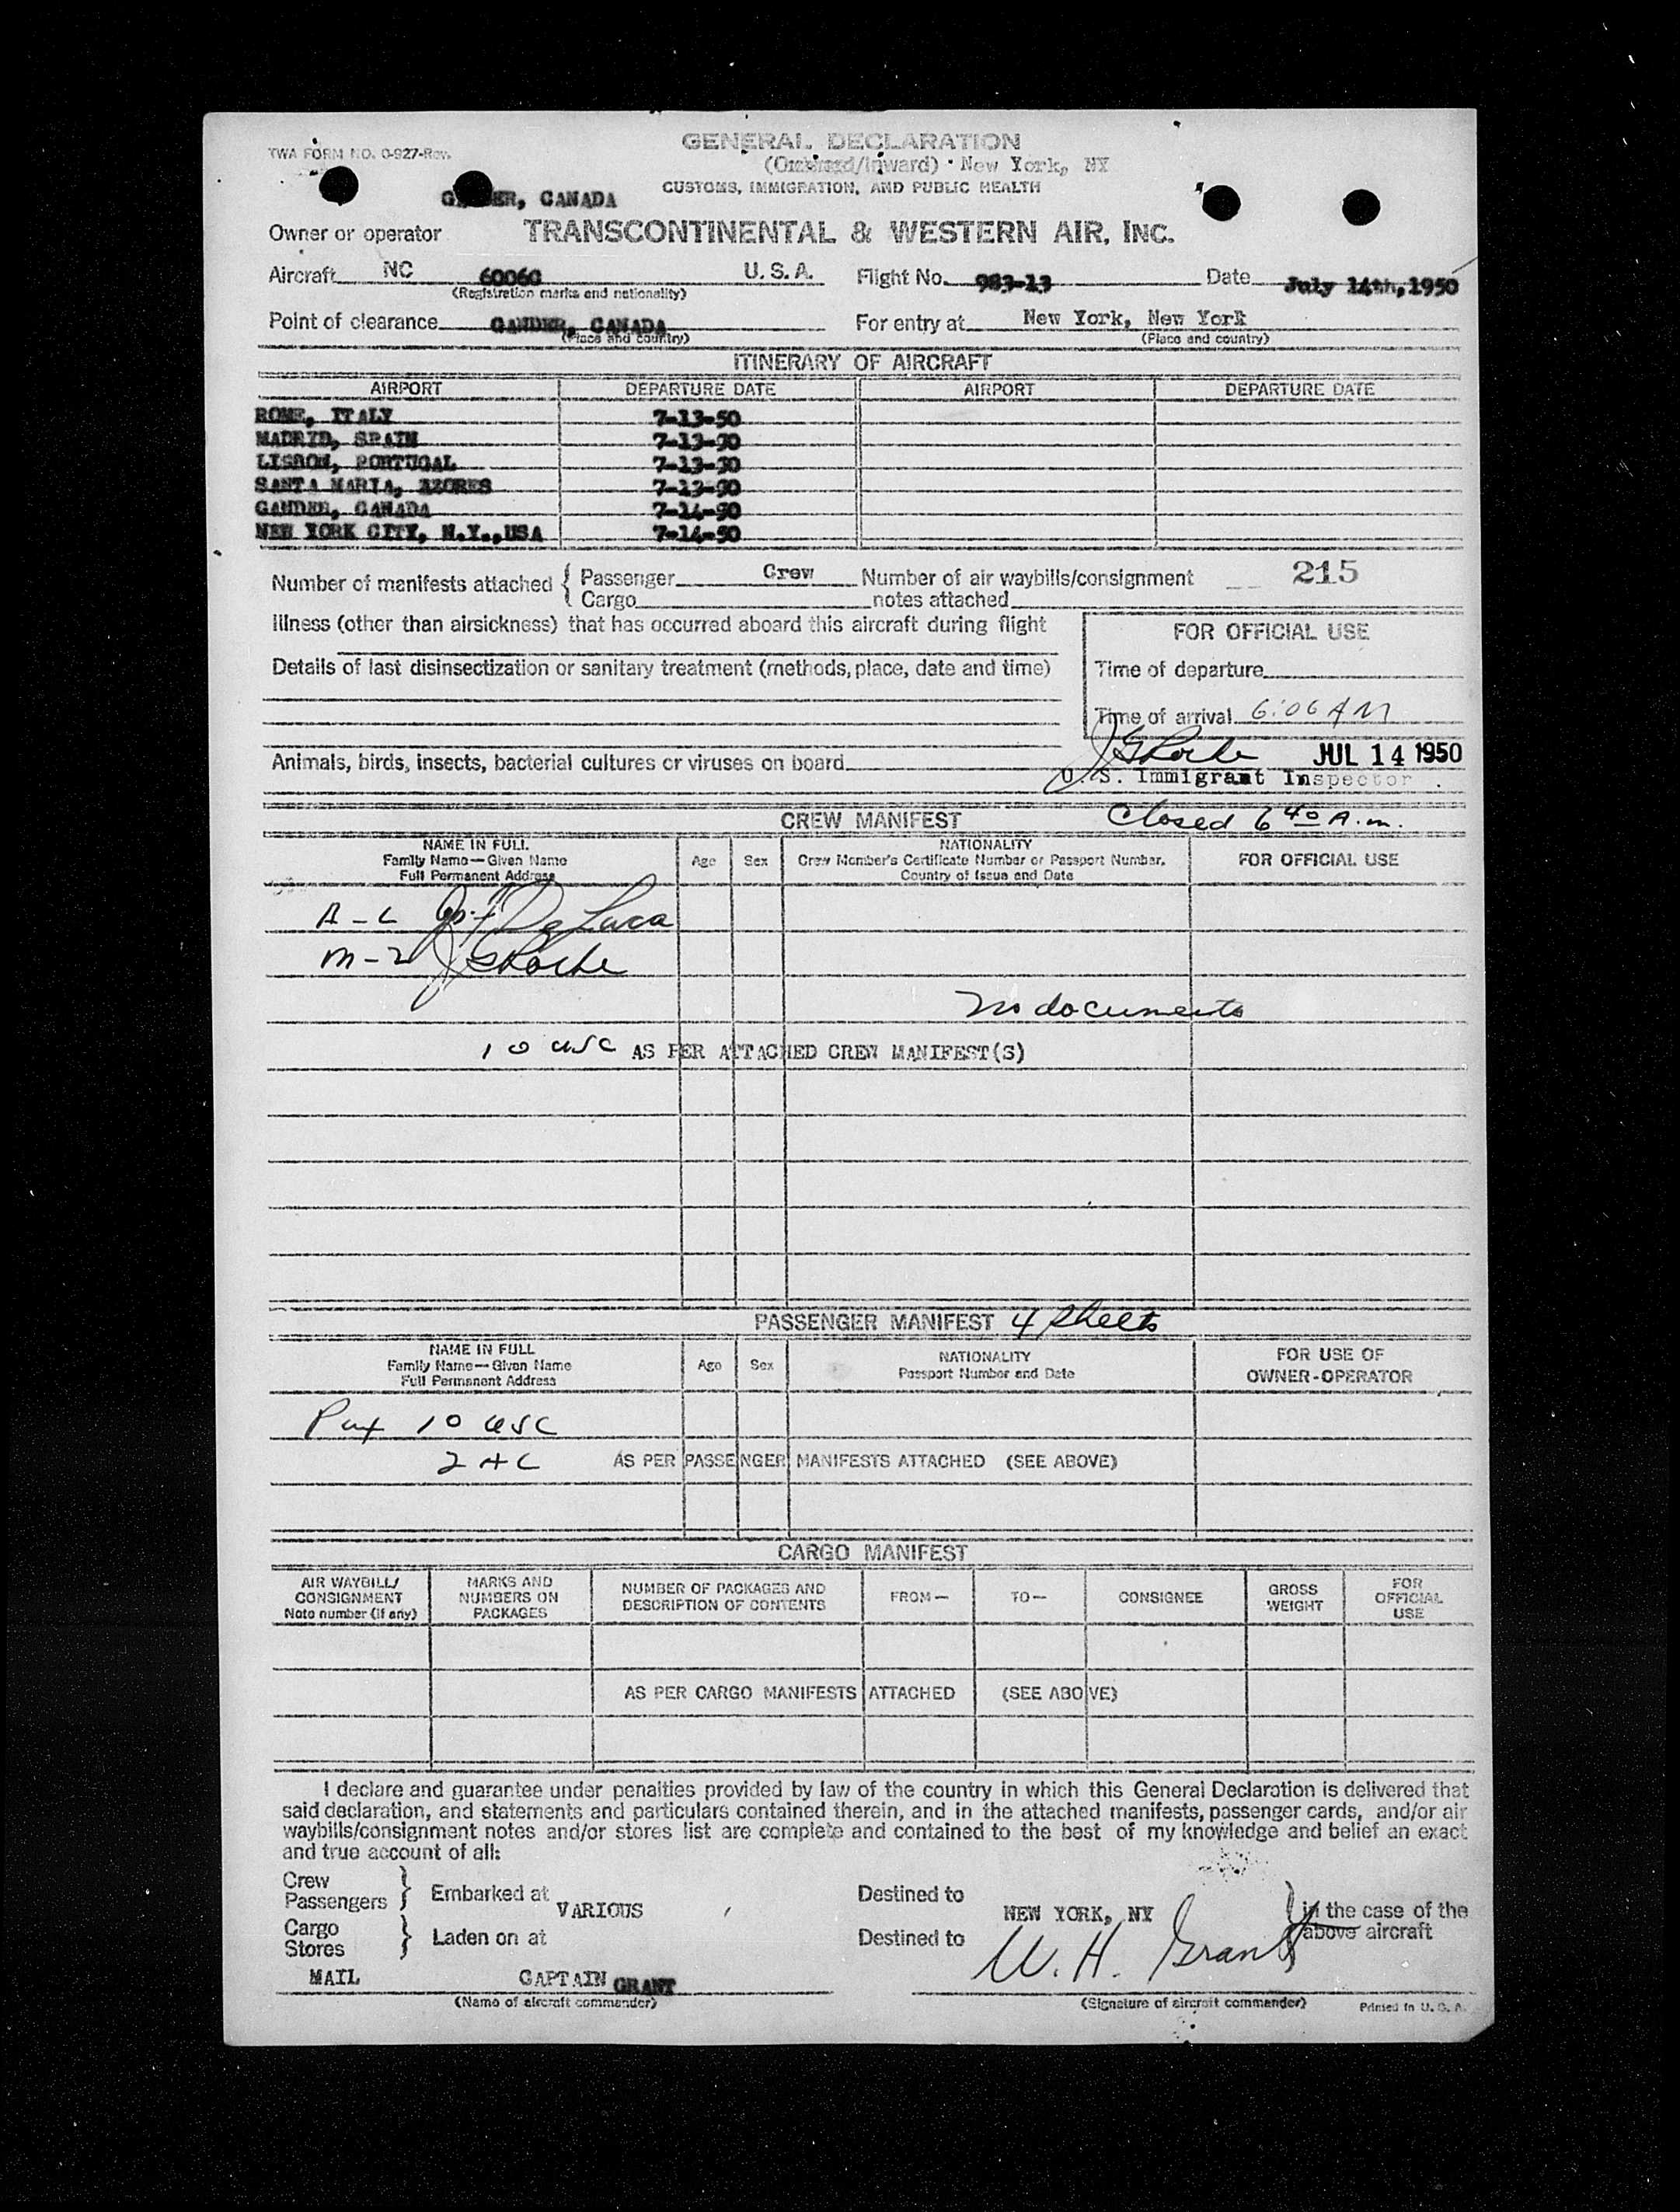 TWA FORM NO. O-927-Rev.
GENERAL DECLARATION
(Outward/Inward) New York, NY
CUSTOMS, IMMIGRATION, AND PUBLIC HEALTH
GANDER, CANADA
Owner or operator TRANSCONTINENTAL & WESTERN AIR, INC.
Aircraft NC 60060 U. S. A. Flight No. 983-13 Date July 14th, 1950
(Registration marks and nationality)
Point of clearance GANDER, CANADA For entry at New York, New York
(Place and country) (Place and country)
ITINERARY OF AIRCRAFT
AIRPORT DEPARTURE DATE AIRPORT DEPARTURE DATE
ROME, ITALY 7-13-50
MADRID, SPAIN 7-13-50
LISBON, PORTUGAL 7-13-50
SANTA MARIA, AZORES 7-13-50
GANDER, CANADA 7-14-50
NEW YORK CITY, N.Y.,USA 7-14-50
Number of manifests attached { Passenger Crew Number of air waybills/consignment 215
Cargo notes attached
Illness (other than airsickness) that has occurred aboard this aircraft during flight
FOR OFFICIAL USE
Details of last disinsectization or sanitary treatment (methods, place, date and time)
Time of departure
Time of arrival 6:06 AM
JUL 14 1950
Animals, birds, insects, bacterial cultures or viruses on board
U. S. Immigrant Inspector
CREW MANIFEST Closed 6 40 A.m.
NAME IN FULL
Family Name—Given Name
Full Permanent Address
Age Sex
NATIONALITY
Crew Member's Certificate Number or Passport Number,
Country of Issue and Date
FOR OFFICIAL USE
A-L De Luca
M-2
No documents
10 USC AS PER ATTACHED CREW MANIFEST(S)
PASSENGER MANIFEST 4 sheets
NAME IN FULL
Family Name—Given Name
Full Permanent Address
Age Sex
NATIONALITY
Passport Number and Date
FOR USE OF
OWNER-OPERATOR
Pax 10 USC
2 AC AS PER PASSENGER MANIFESTS ATTACHED (SEE ABOVE)
CARGO MANIFEST
AIR WAYBILL/
CONSIGNMENT
Note number (if any)
MARKS AND
NUMBERS ON
PACKAGES
NUMBER OF PACKAGES AND
DESCRIPTION OF CONTENTS
FROM— TO— CONSIGNEE
GROSS
WEIGHT
FOR
OFFICIAL
USE
AS PER CARGO MANIFESTS ATTACHED (SEE ABOVE)
I declare and guarantee under penalties provided by law of the country in which this General Declaration is delivered that
said declaration, and statements and particulars contained therein, and in the attached manifests, passenger cards, and/or air
waybills/consignment notes and/or stores list are complete and contained to the best of my knowledge and belief an exact
and true account of all:
Crew
Passengers } Embarked at VARIOUS Destined to NEW YORK, NY } in the case of the
above aircraft
Cargo
Stores } Laden on at Destined to
W. H. Grant
MAIL CAPTAIN GRANT
(Name of aircraft commander) (Signature of aircraft commander) Printed in U. S. A.